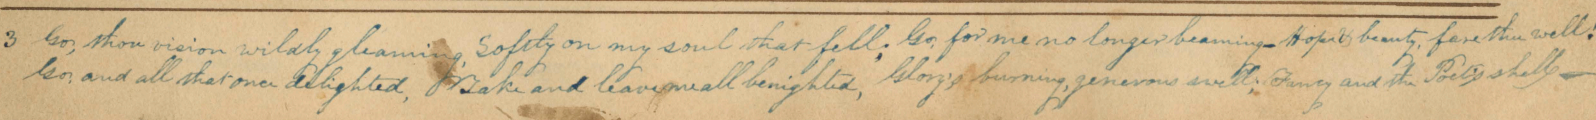 3 Go, thou vision wildly gleaming, Softly on my soul that fell; Go, for me no longer beaming - Hope & beauty, fare thee well!
Go, and all that once delighted, Take and leave me all benighted, Glory's burning, generous swell, Fancy and the Poet's shell -